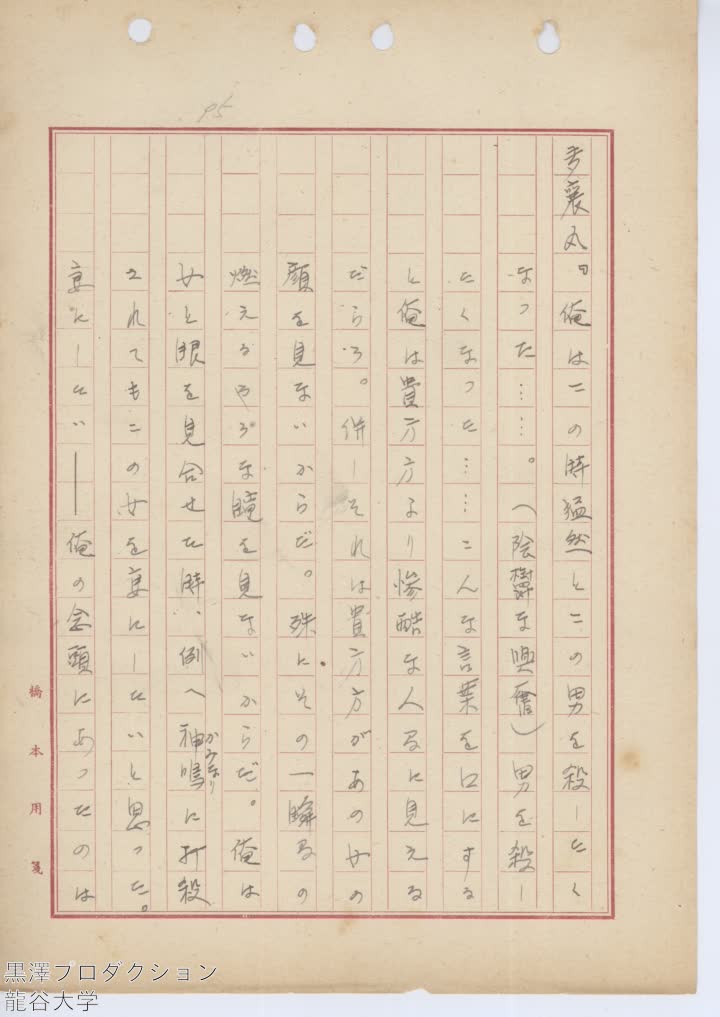 95
多襄丸。『俺はこの時猛然とこの男を殺したく
なった……。(陰鬱な興奮)男を殺し
たくなった……こんな言葉を口にする
と俺は貴方方より惨酷な人間に見える
だらう。併しそれは貴方方があの女の
顔を見ないからだ。殊にその一瞬間の
燃えるやうな瞳を見ないからだ。俺は
女と眼を見合せた時、例へ神鳴に打殺
かみなり
されてもこの女を妻にしたいと思った。
妻にしたい――俺の念頭にあったのは
橋本用箋
黒澤プロダクション
龍谷大学